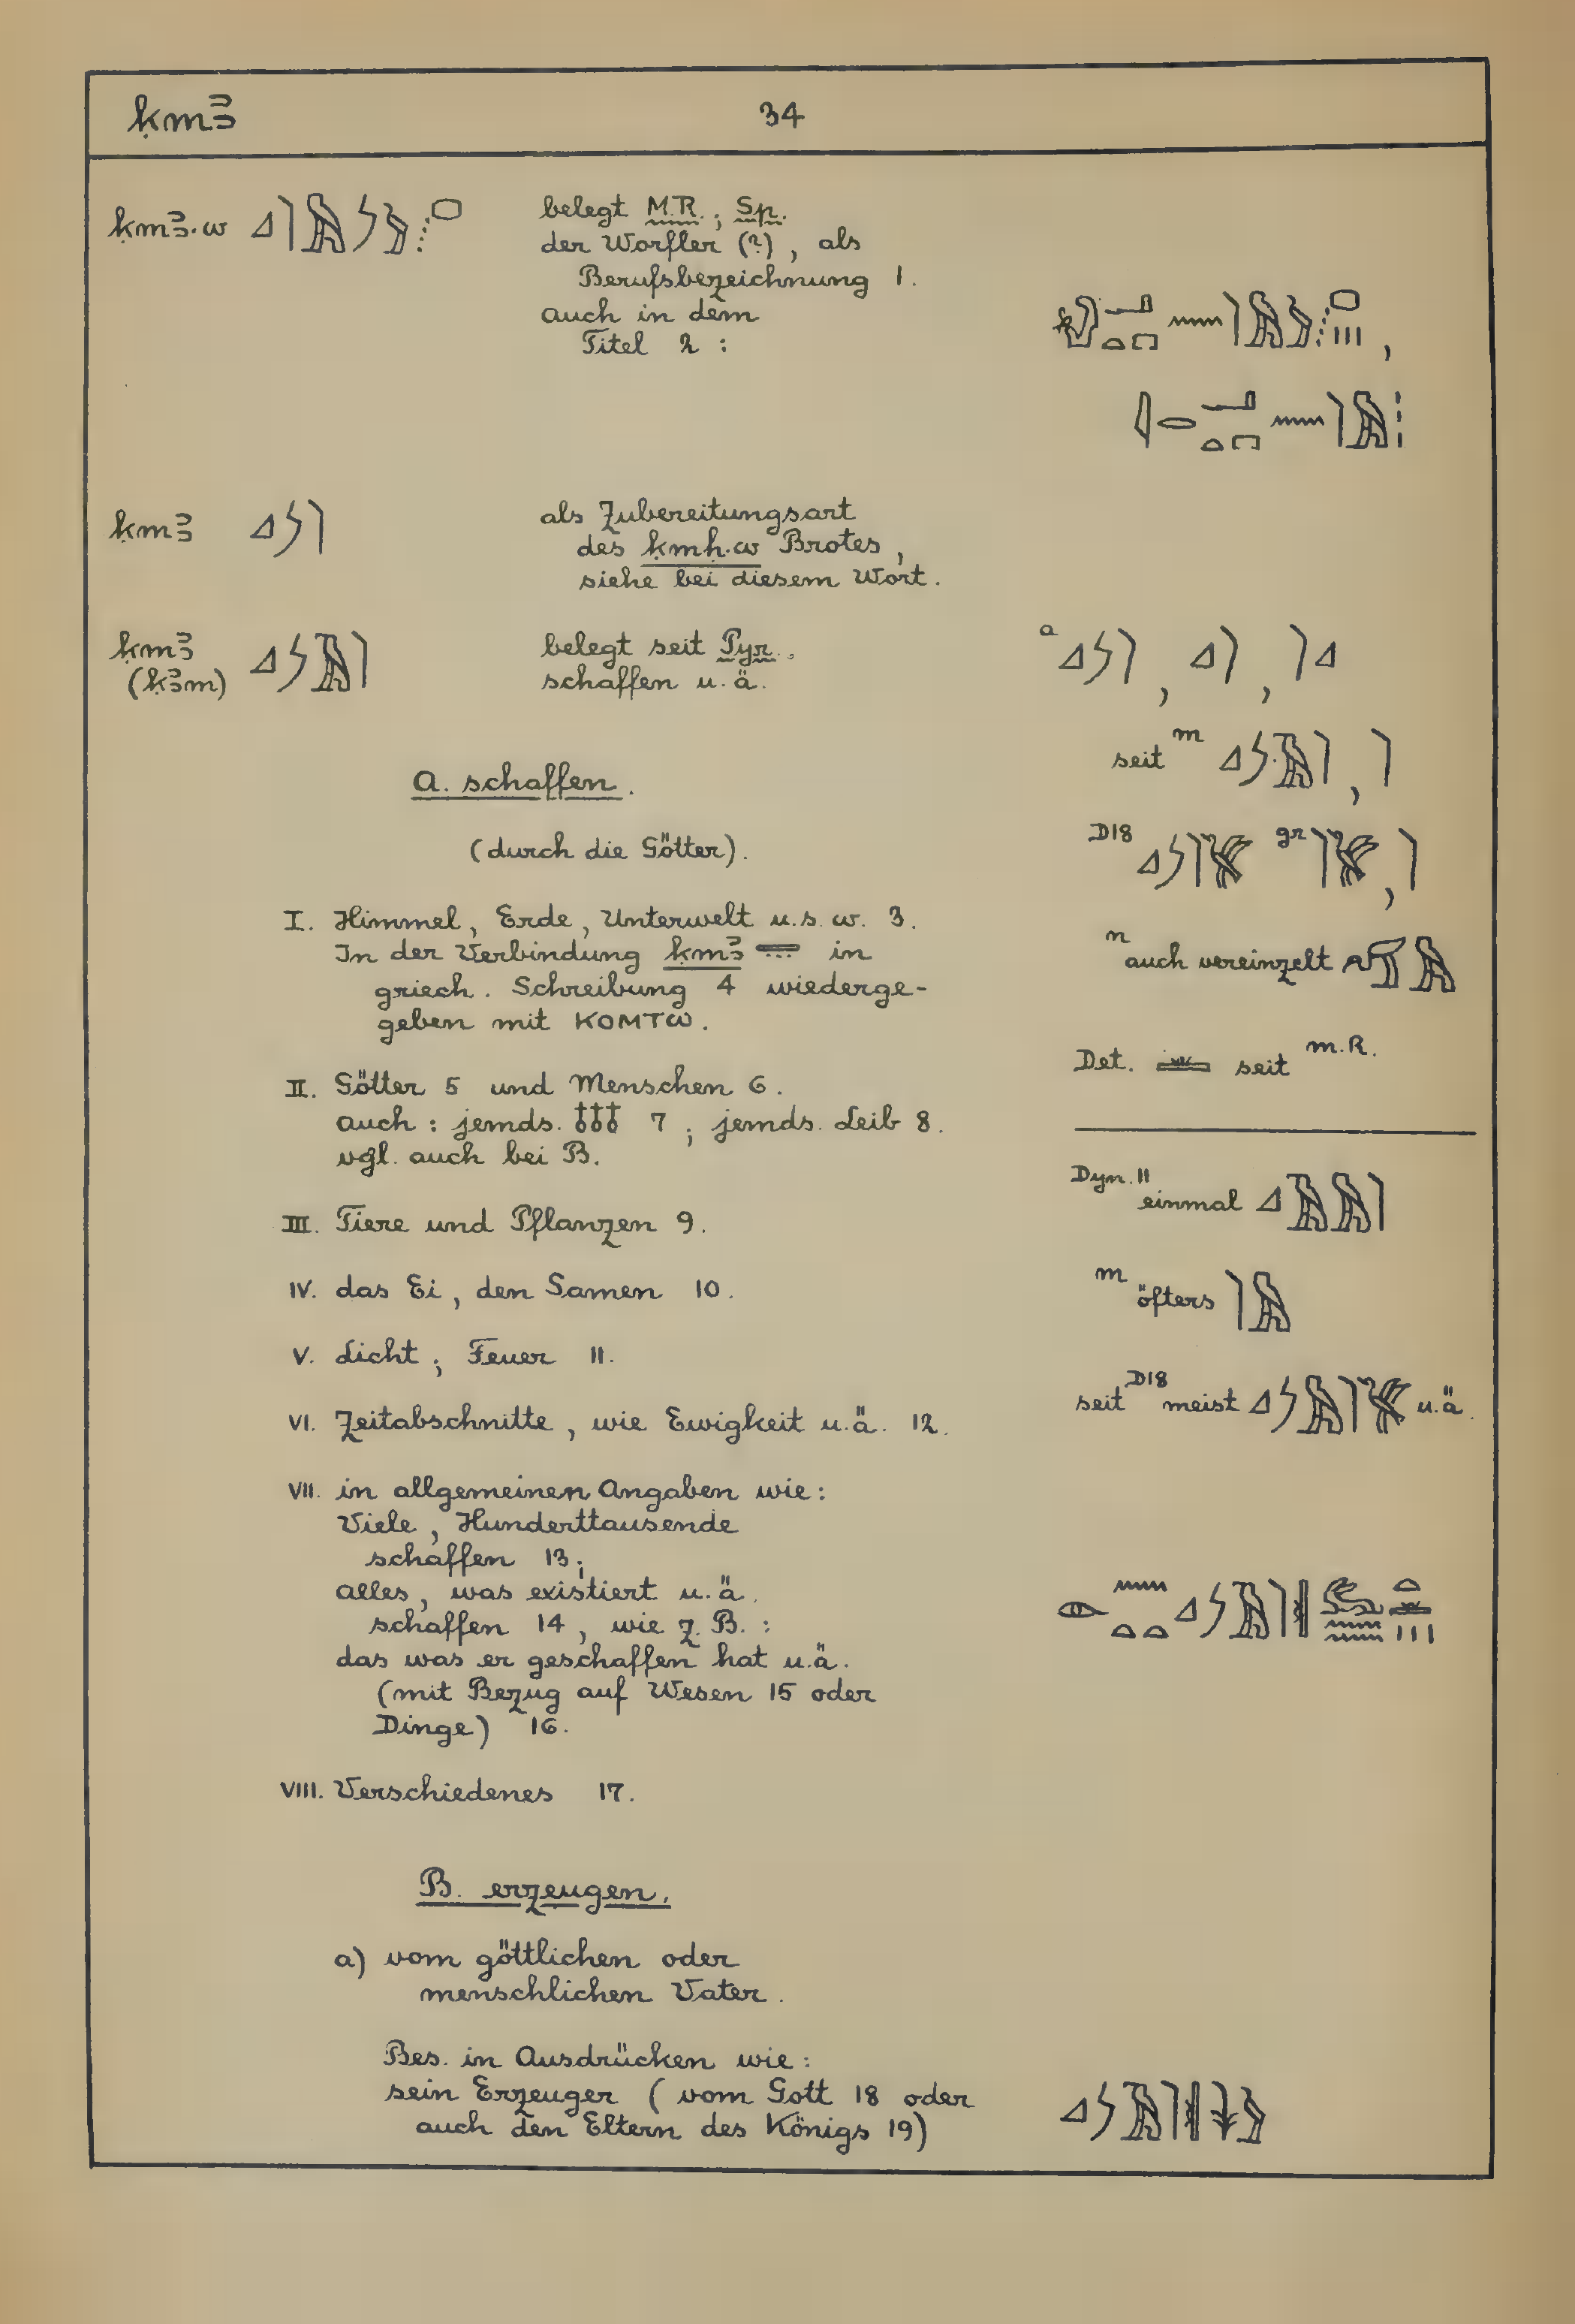 ḳmꜣ 34
ḳmꜣ.w
belegt M.R.; Sp.
der Worfler (?), als
Berufsbezeichnung 1.
auch in dem
Titel 2 :
ḳmꜣ
als Zubereitungsart
des ḳmḥ.w Brotes,
siehe bei diesem Wort.
ḳmꜣ
(ḳꜣm)
belegt seit Pyr.
schaffen u.ä.
a
seit m
D18 gr
n auch vereinzelt
Det. seit m.R.
Dyn. 11 einmal
m öfters
seit D18 meist u.ä.
A. schaffen.
(durch die Götter).
I. Himmel, Erde, Unterwelt u.s.w. 3.
In der Verbindung ḳmꜣ in
griech. Schreibung 4 wiederge-
geben mit ΚΟΜΤω.
II. Götter 5 und Menschen 6.
auch : jemds. 𓄤𓄤𓄤 7 ; jemds. Leib 8.
vgl. auch bei B.
III. Tiere und Pflanzen 9.
IV. das Ei, den Samen 10.
V. Licht ; Feuer 11.
VI. Zeitabschnitte, wie Ewigkeit u.ä. 12.
VII. in allgemeinen Angaben wie :
Viele, Hunderttausende
schaffen 13;
alles, was existiert u.ä.
schaffen 14, wie z.B. :
das was er geschaffen hat u.ä.
(mit Bezug auf Wesen 15 oder
Dinge) 16.
VIII. Verschiedenes 17.
B. erzeugen.
a) vom göttlichen oder
menschlichen Vater.
Bes. in Ausdrücken wie :
sein Erzeuger ( vom Gott 18 oder
auch den Eltern des Königs 19)